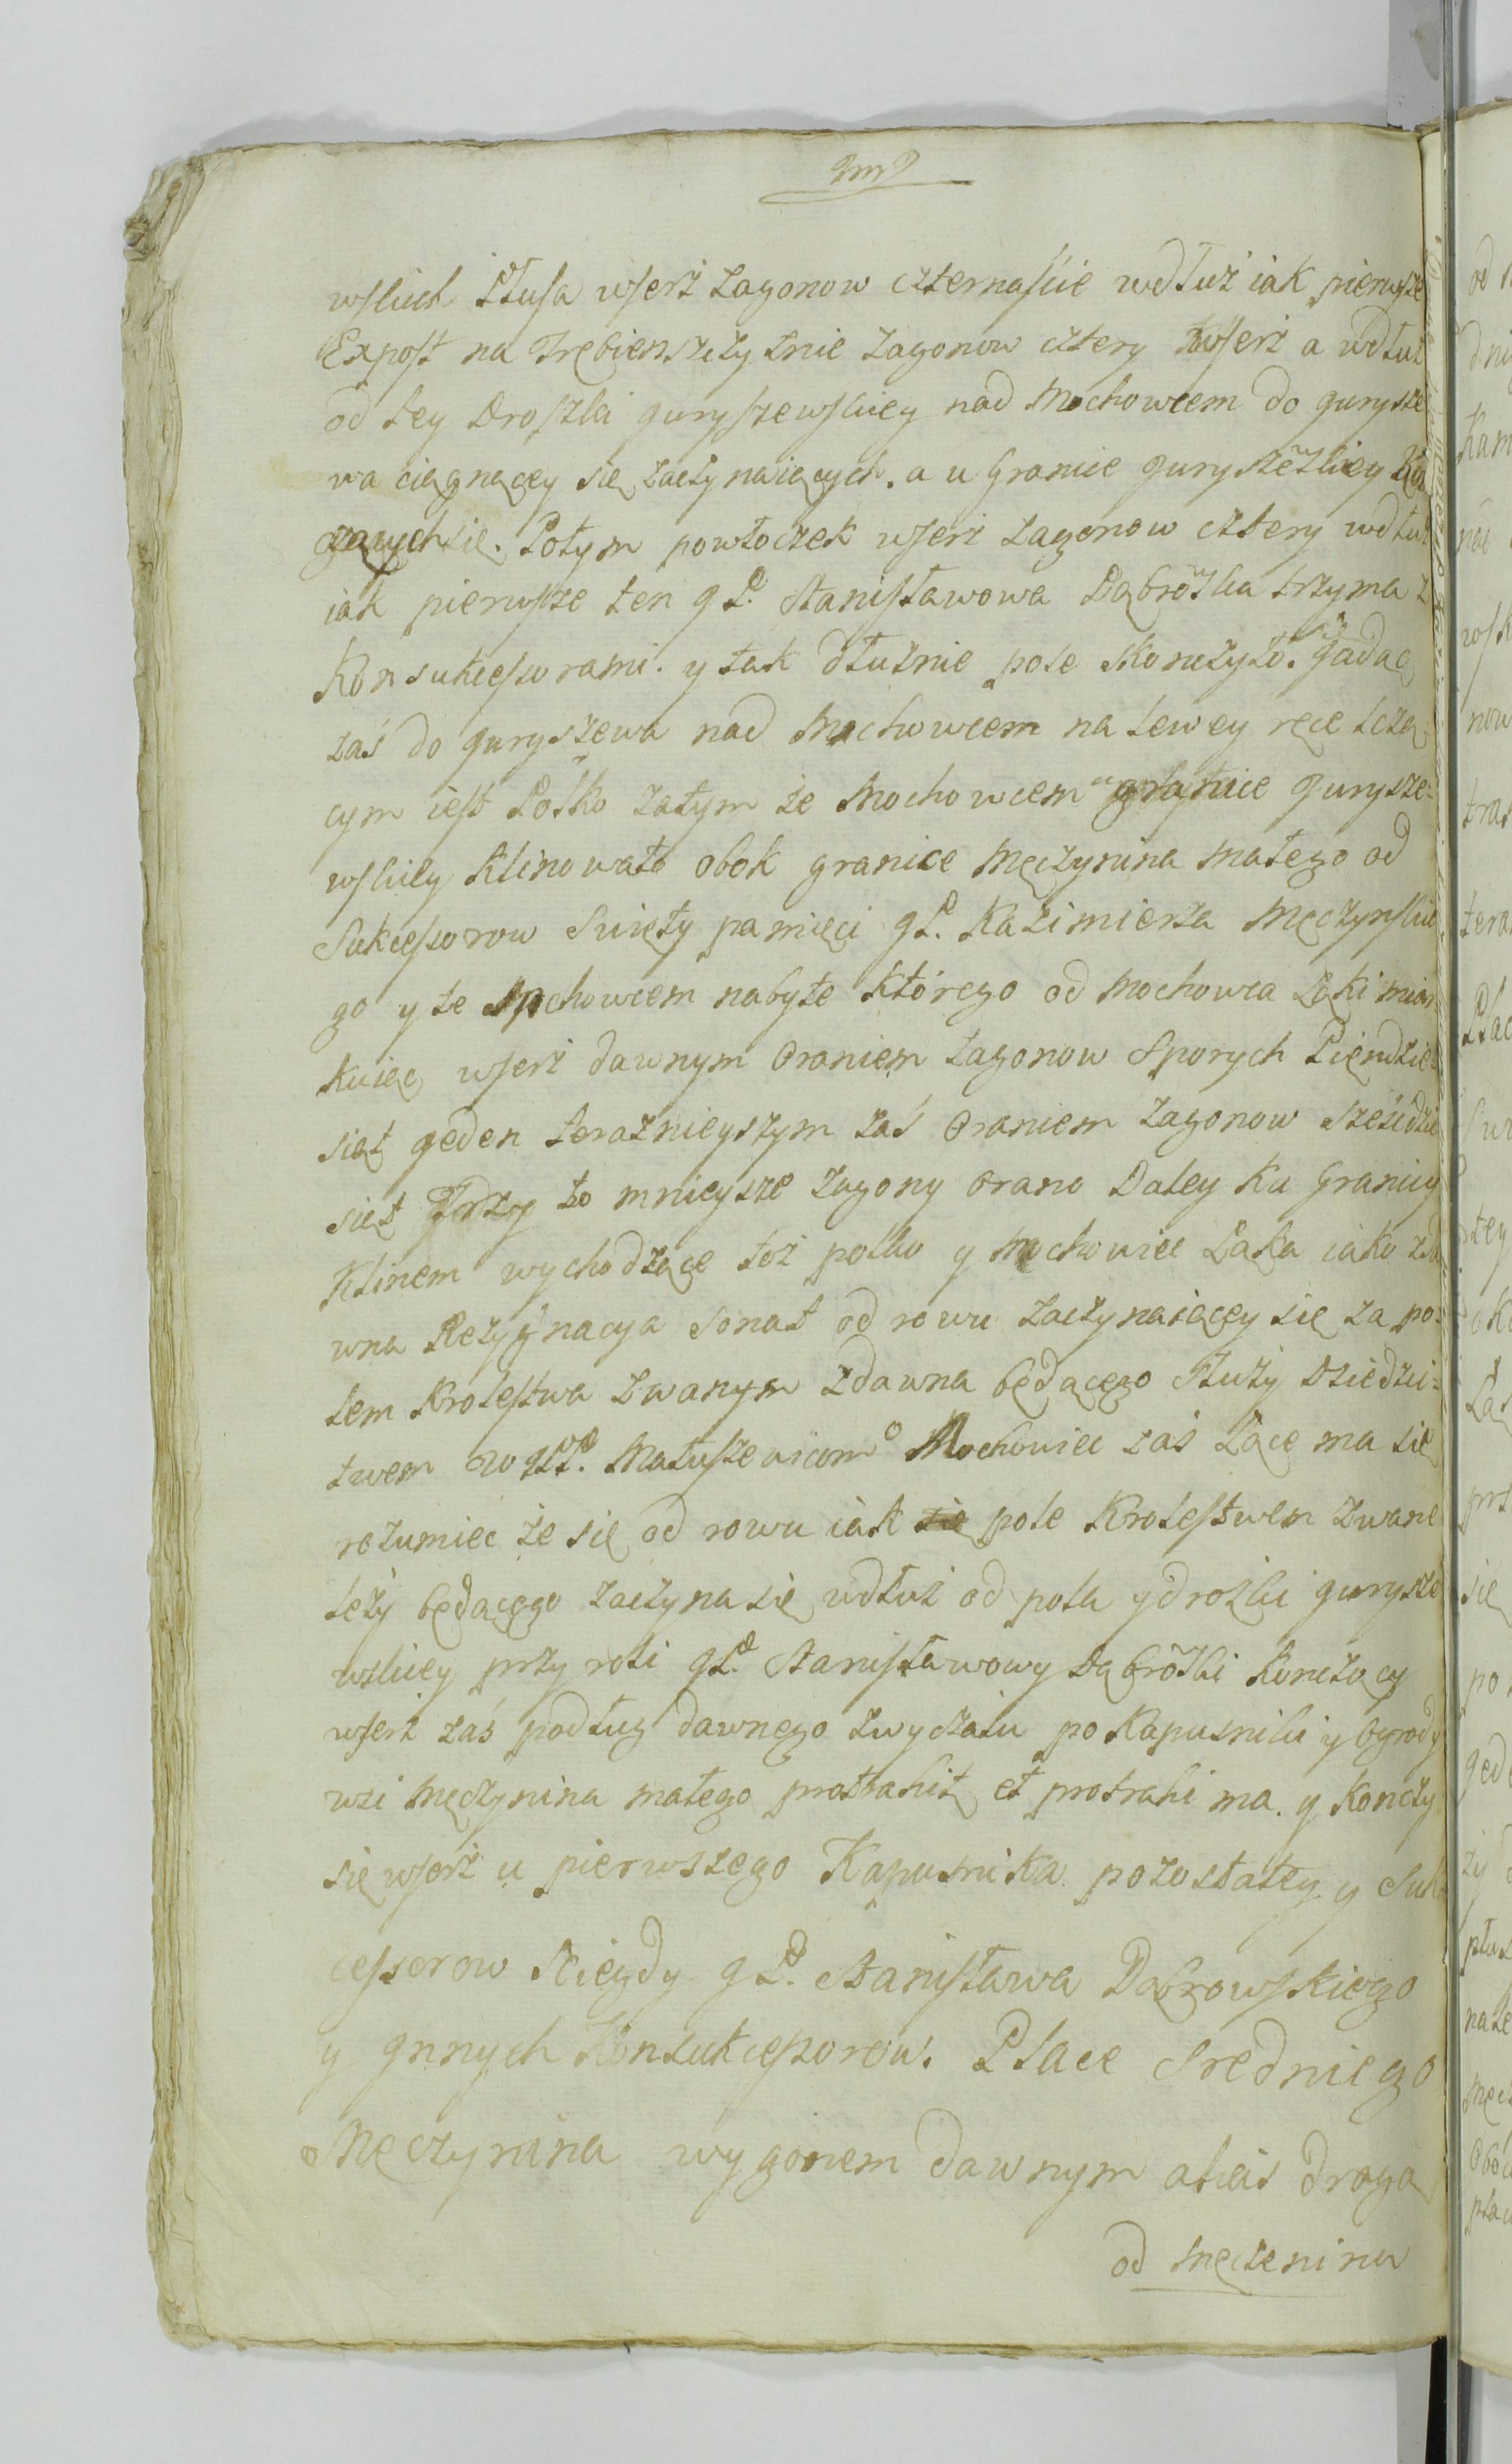 wskich Płusa wszerż Zagonow czternaście wdłuż iak pierwsze
Expost na Trębienszczyznie Zagonow cztery wszerż a wdłuż
od tey Droszki guryszewskiey nad Mochowcem do gurysze
wa ciągnącey się zaczynaiących. a u Granice gurysze͠zkiey
gących się. Potym powłoczek wszerż zagonow cztery wdłuż
iak pierwsze ten g P. Stanisławowa Dąbro͠zka trzyma z
Konsukcessorami. y tak dłużnie pole skonczyło. Jadąc
zaś do guryszewa nad Mochowcem na lewey ręce leżą=
cym iest Polko zatym że Mochowcem u granice gurysze=
wskiey klinowato obok granice Męczynina małego od
Sukcessorow Swięty pamięci gP. Kazimierza Męczynskie
go y te Mochowcem nabyte którego od Mochowca Łąki miar
kuiąc wszerż dawnym Oraniem Zagonow Sporych Pięndzie=
siąt geden teraznieyszym zaś Oraniem Zagonow sześćdzie
siąt Trzy bo mnieysze Zagony Orano Daley ku Granicy
Klinem wychodzące też polko y Mochowiec Łąka iako zda
wna Rezygnacya Sonat od rowu zaczynaiącey się za po=
lem Krolestwa zwanym zdawna będącego służy Dziedzi=
twem WgPP. Matuszewicom Mochowiec zaś Łącę ma się
rozumieć że się od rowu iak pole Krolestwem zwane
leży będącego zaczyna się wdłuż od pola y drożki gurysze
wskiey przy roli gP. Stanisławowy Dąbro͠zki konczący
wszerż zaś podług dawnego zwyczaiu po Kapusniki y Ogrody
wsi Męczynina małego protrahit et protrahi ma. y konczy
się wszerż u pierwszego Kapusnika pozostałey y Suk
cessorow Niegdy g P. Stanisława Dąbrowskiego
y gnnych Konsukcessorow. Place Sredniego
Męczynina wygonem dawnym alias drogą
od Męczenina